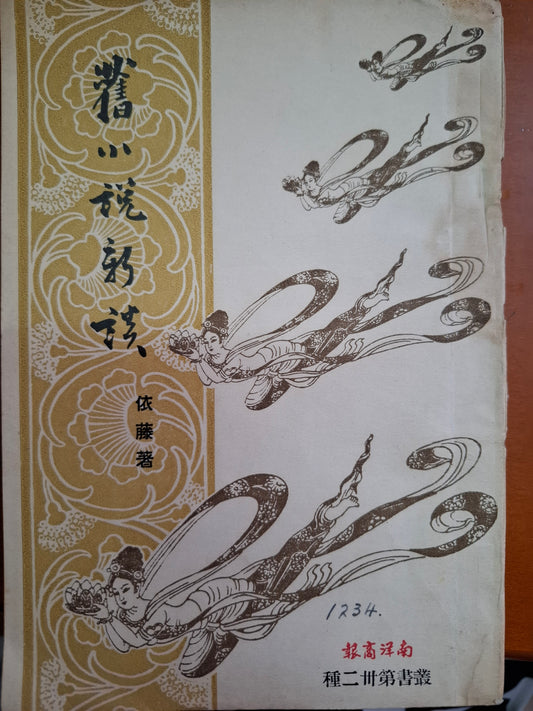 舊小說新談
依藤著
1234.
南洋商報
叢書第卅二種